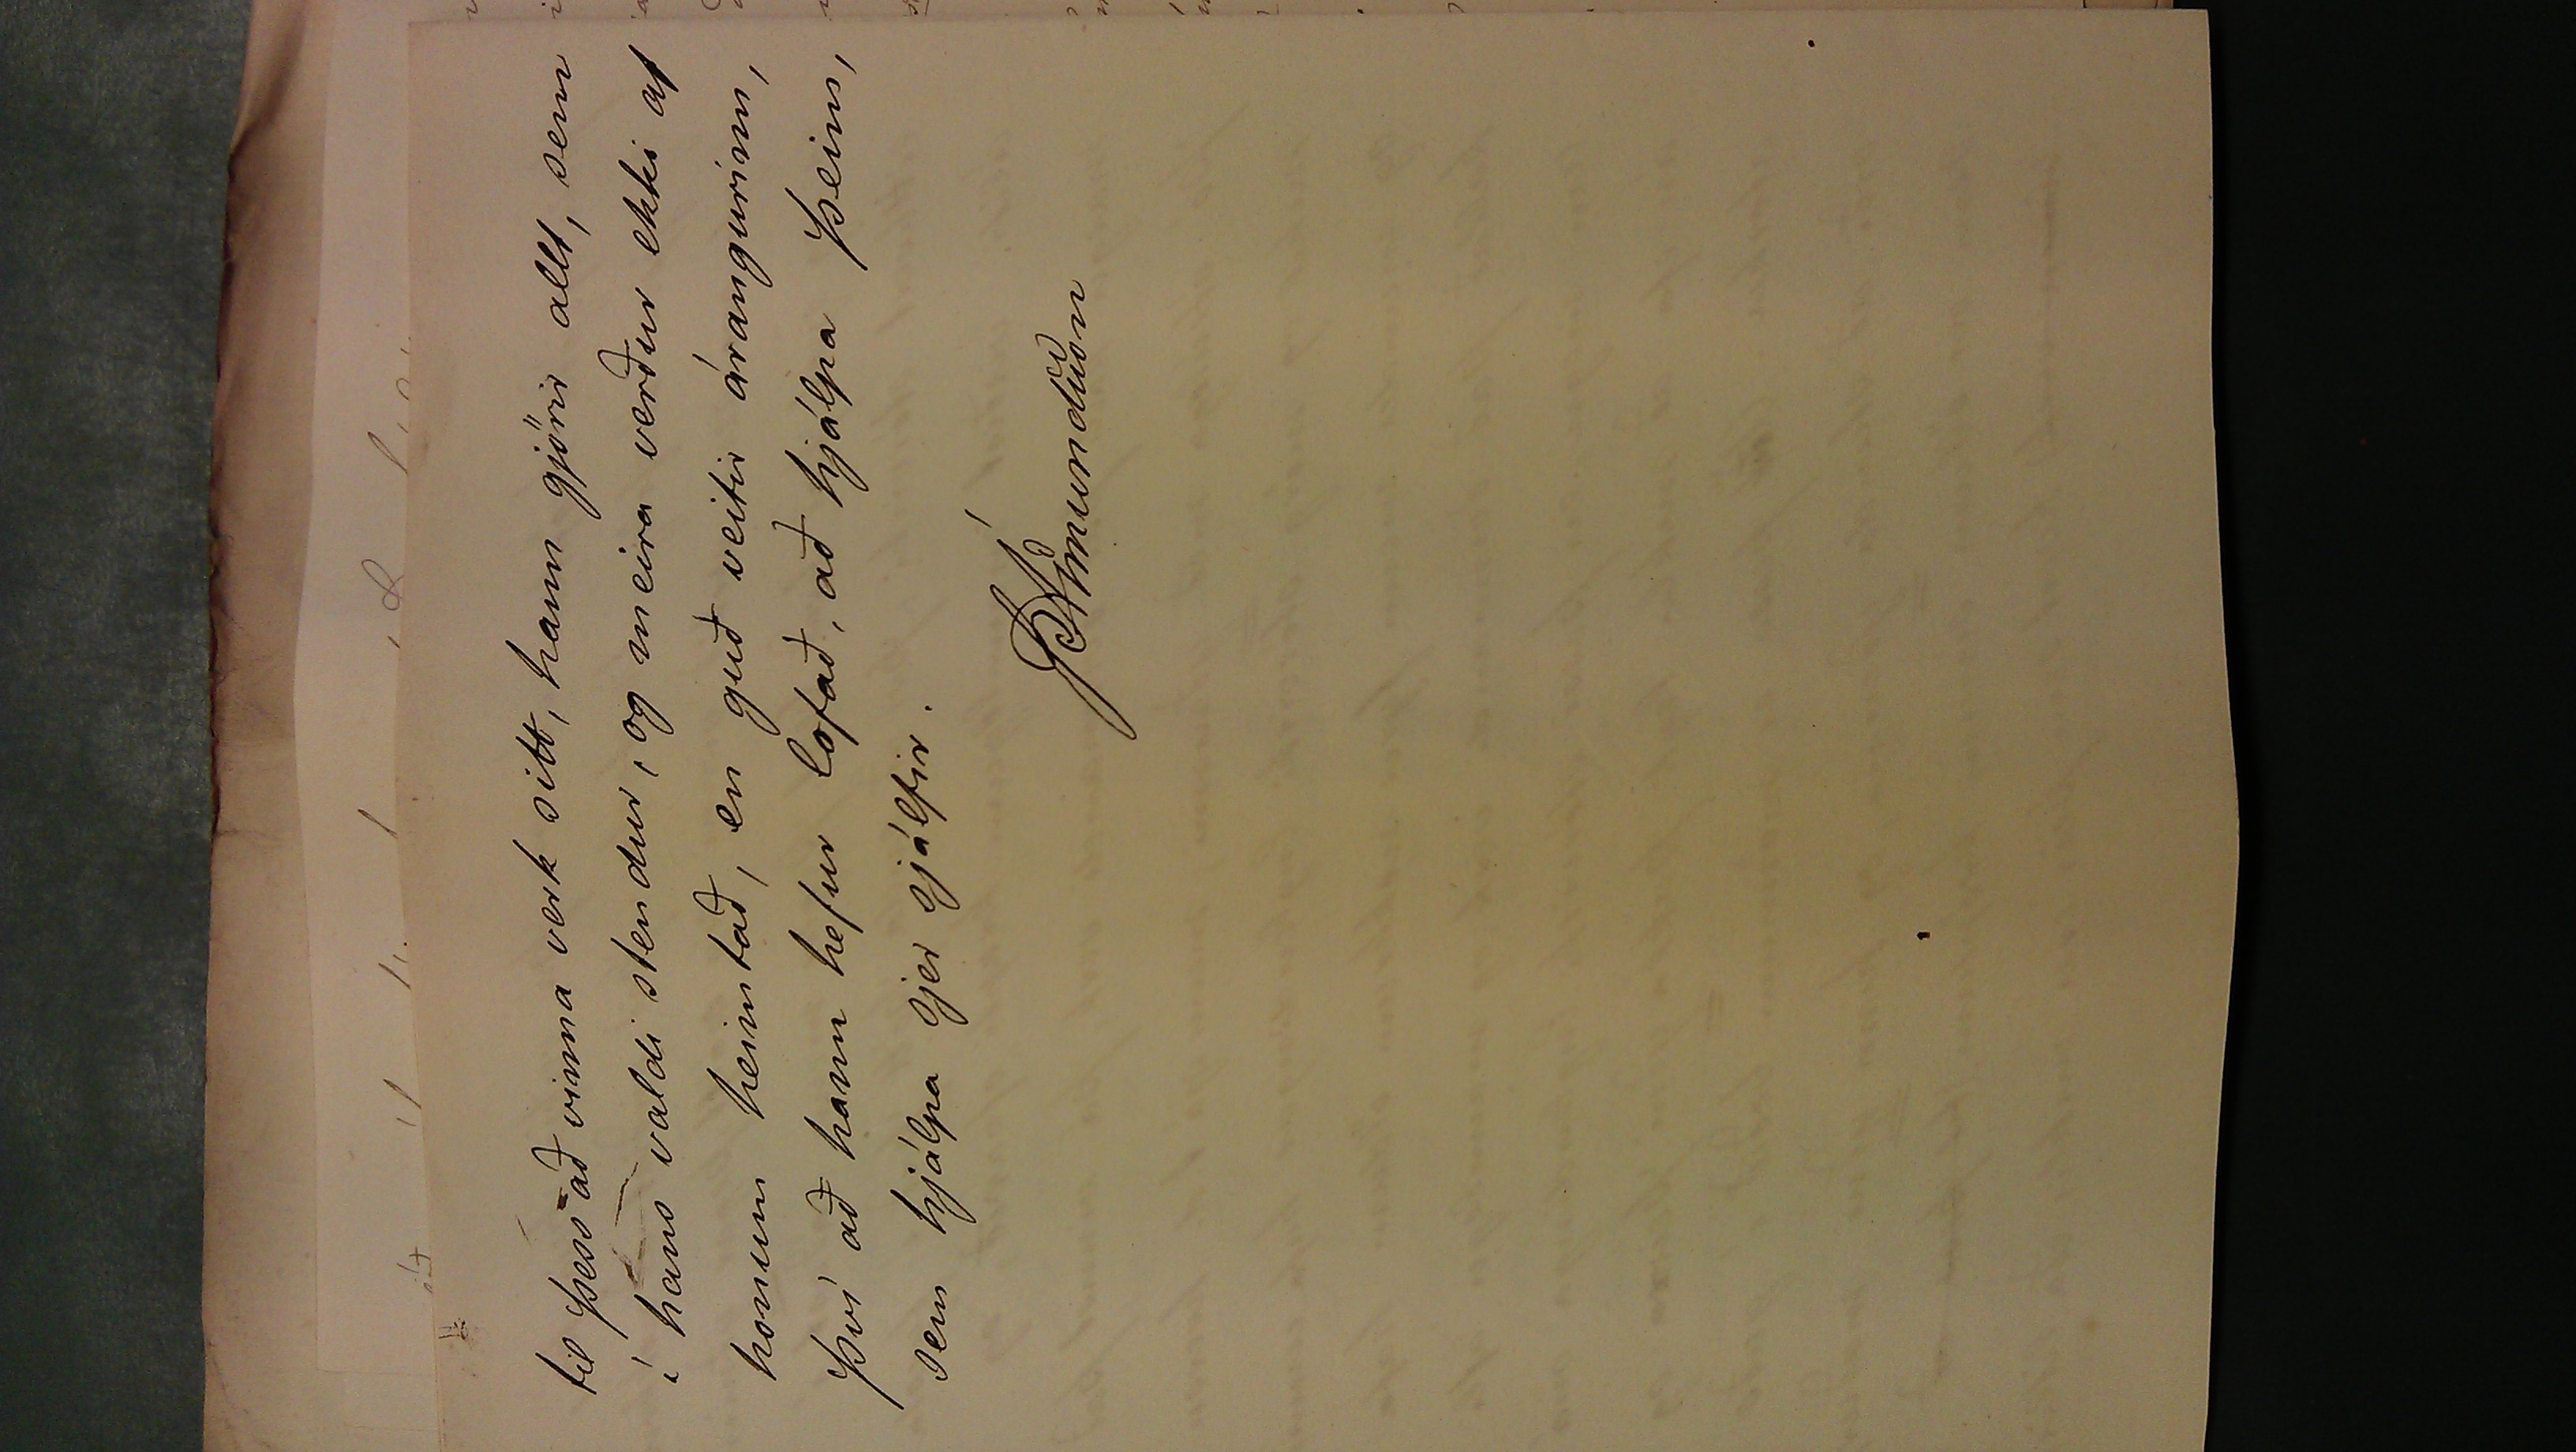 til þess að vinna verk sitt, hann gjörir allt, sem
í hans valdi stendur, og meira verður ekki af
honum heimtað, en guð veitir árangurinn,
því að hann hefur lofað, að hjálpa þeim,
sem hjálpa sjer sjálfir.
Ámundason